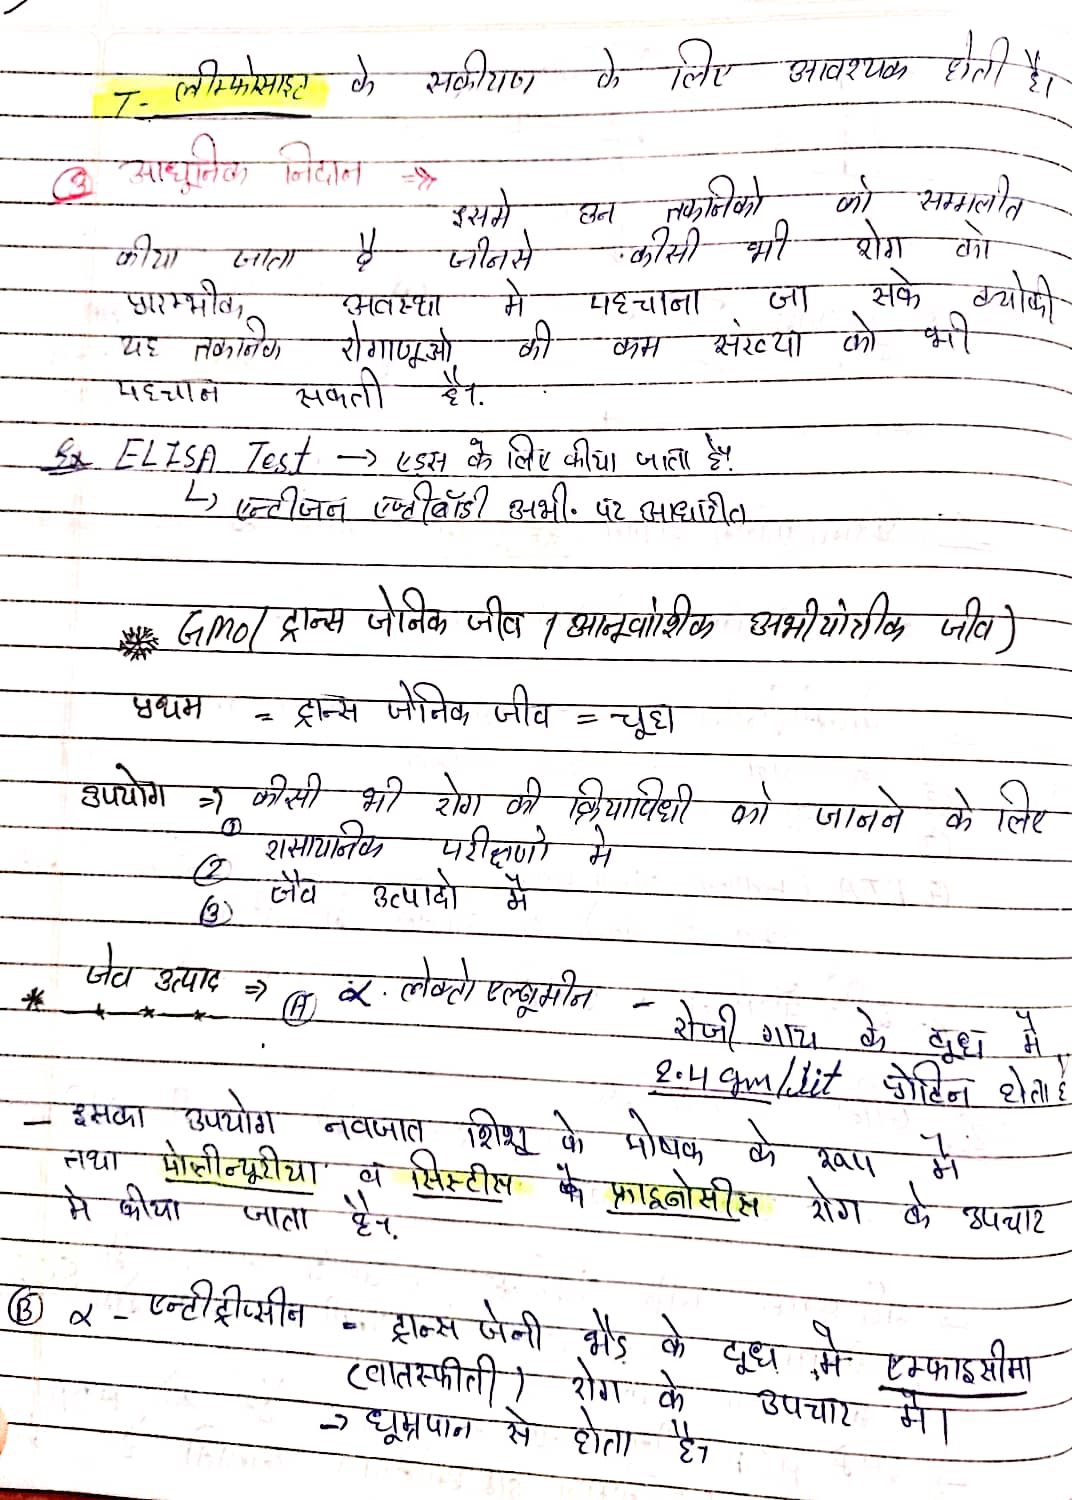 T- लीम्फोसाइट के सकीयण के लिए आवश्यक होती है।
③ आधुनिक निदान ⇒
इसमे उन तकनिको को सम्मलीत
कीया जाता है जीनसे कीसी भी रोग को
प्रारम्भीक अवस्था मे पहचाना जा सके क्योकी
यह तकनिक रोगाणूओ की कम संख्या को भी
पहचान सकती है।
Ex ELISA Test → एड्स के लिए कीया जाता है।
↳ एन्टीजन एण्टीबॉडी अभी. पर आधारीत
GMO/ ट्रान्स जेनिक जीव (आनूवांशिक अभीयांत्रीक जीव)
प्रथम = ट्रान्स जेनिक जीव = चूहा
उपयोग ⇒ कीसी भी रोग की क्रियाविधी को जानने के लिए
①
② रासायनिक परीक्षणो मे
③ जैव उत्पादो मैं
* जेव उत्पाद ⇒ Ⓐ α. लेक्टोएल्बूमीन -
रोजी गाय के दूध मैं
2.4 gm/lit प्रोटिन होता है
- इसका उपयोग नवजात शिशू के पोषक के रूप मैं
तथा पोलीन्यूरीया व सिस्टीस के फ्राइनोसीस रोग के उपचार
मे कीया जाता है।
Ⓑ α - एन्टीट्रीप्सीन - ट्रान्स जेनी भैड़ के दूध मे एम्फाइसीमा
(वातस्फीती) रोग के उपचार मैं।
→ धूम्रपान से होता है।